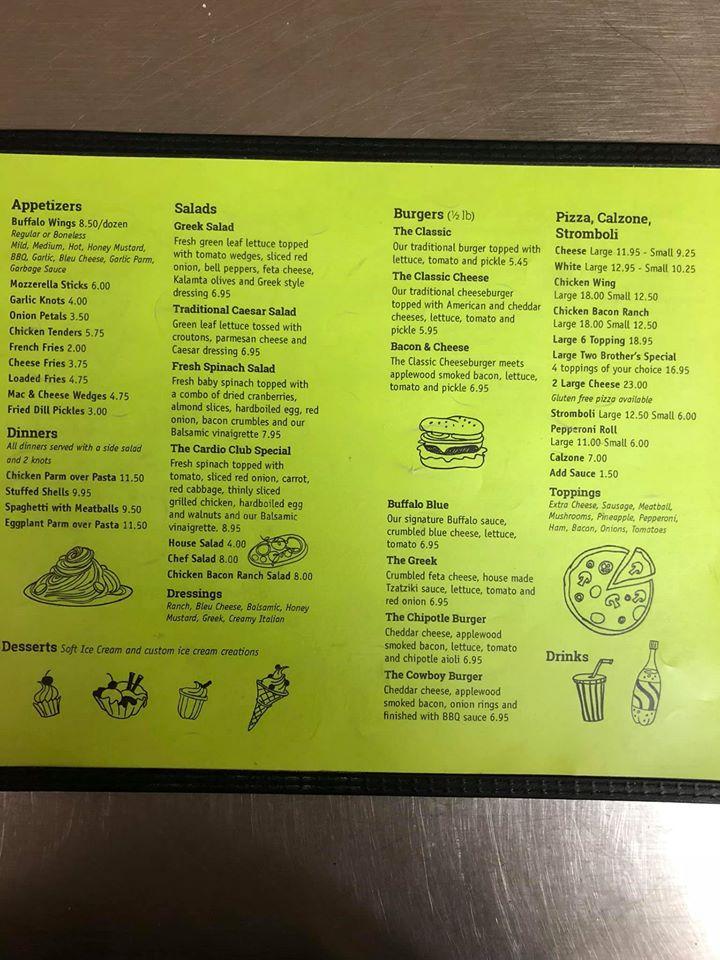 Appetizers
Buffalo Wings 8.50/dozen
Regular or Boneless
Mild, Medium, Hot, Honey Mustard,
BBQ, Garlic, Bleu Cheese, Garlic Parm,
Garbage Sauce
Mozzerella Sticks 6.00
Garlic Knots 4.00
Onion Petals 3.50
Chicken Tenders 5.75
French Fries 2.00
Cheese Fries 3.75
Loaded Fries 4.75
Mac & Cheese Wedges 4.75
Fried Dill Pickles 3.00
Dinners
All dinners served with a side salad
and 2 knots
Chicken Parm over Pasta 11.50
Stuffed Shells 9.95
Spaghetti with Meatballs 9.50
Eggplant Parm over Pasta 11.50
Salads
Greek Salad
Fresh green leaf lettuce topped
with tomato wedges, sliced red
onion, bell peppers, feta cheese,
Kalamta olives and Greek style
dressing 6.95
Traditional Caesar Salad
Green leaf lettuce tossed with
croutons, parmesan cheese and
Caesar dressing 6.95
Fresh Spinach Salad
Fresh baby spinach topped with
a combo of dried cranberries,
almond slices, hardboiled egg, red
onion, bacon crumbles and our
Balsamic vinaigrette 7.95
The Cardio Club Special
Fresh spinach topped with
tomato, sliced red onion, carrot,
red cabbage, thinly sliced
grilled chicken, hardboiled egg
and walnuts and our Balsamic
vinaigrette. 8.95
House Salad 4.00
Chef Salad 8.00
Chicken Bacon Ranch Salad 8.00
Dressings
Ranch, Bleu Cheese, Balsamic, Honey
Mustard, Greek, Creamy Italian
Desserts Soft Ice Cream and custom ice cream creations
Burgers (½ lb)
The Classic
Our traditional burger topped with
lettuce, tomato and pickle 5.45
The Classic Cheese
Our traditional cheeseburger
topped with American and cheddar
cheeses, lettuce, tomato and
pickle 5.95
Bacon & Cheese
The Classic Cheeseburger meets
applewood smoked bacon, lettuce,
tomato and pickle 6.95
Buffalo Blue
Our signature Buffalo sauce,
crumbled blue cheese, lettuce,
tomato 6.95
The Greek
Crumbled feta cheese, house made
Tzatziki sauce, lettuce, tomato and
red onion 6.95
The Chipotle Burger
Cheddar cheese, applewood
smoked bacon, lettuce, tomato
and chipotle aioli 6.95
The Cowboy Burger
Cheddar cheese, applewood
smoked bacon, onion rings and
finished with BBQ sauce 6.95
Pizza, Calzone,
Stromboli
Cheese Large 11.95 - Small 9.25
White Large 12.95 - Small 10.25
Chicken Wing
Large 18.00 Small 12.50
Chicken Bacon Ranch
Large 18.00 Small 12.50
Large 6 Topping 18.95
Large Two Brother's Special
4 toppings of your choice 16.95
2 Large Cheese 23.00
Gluten free pizza available
Stromboli Large 12.50 Small 6.00
Pepperoni Roll
Large 11.00 Small 6.00
Calzone 7.00
Add Sauce 1.50
Toppings
Extra Cheese, Sausage, Meatball,
Mushrooms, Pineapple, Pepperoni,
Ham, Bacon, Onions, Tomatoes
Drinks